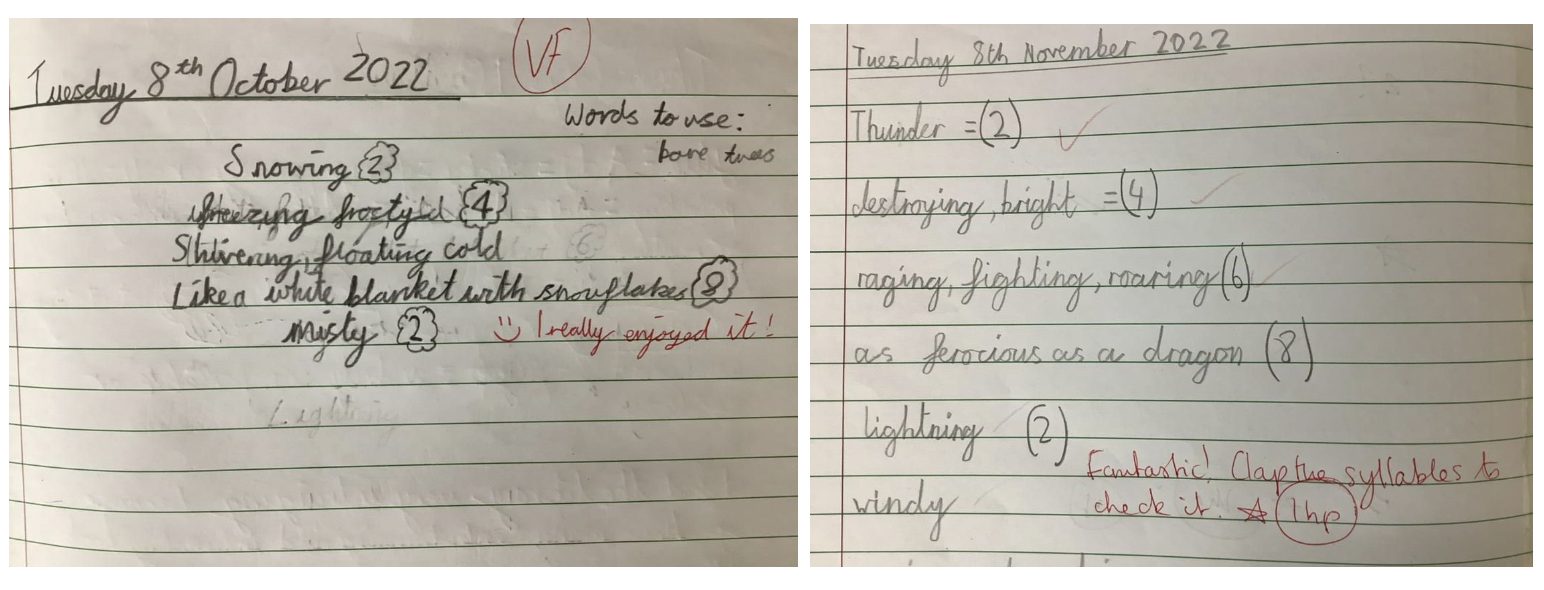 VF
Tuesday 8th October 2022
Words to use:
bare trees
Snowing {2}
frosty {4}
Shivering, floating cold
{6}
Like a white blanket with snowflakes {8}
misty {2} I really enjoyed it!
Lightning
Tuesday 8th November 2022
Thunder =(2)
destroying, bright =(4)
raging, fighting, roaring (6)
as ferocious as a dragon (8)
lightning (2)
Fantastic! Clap the syllables to
check it. ☆ 1hp
windy